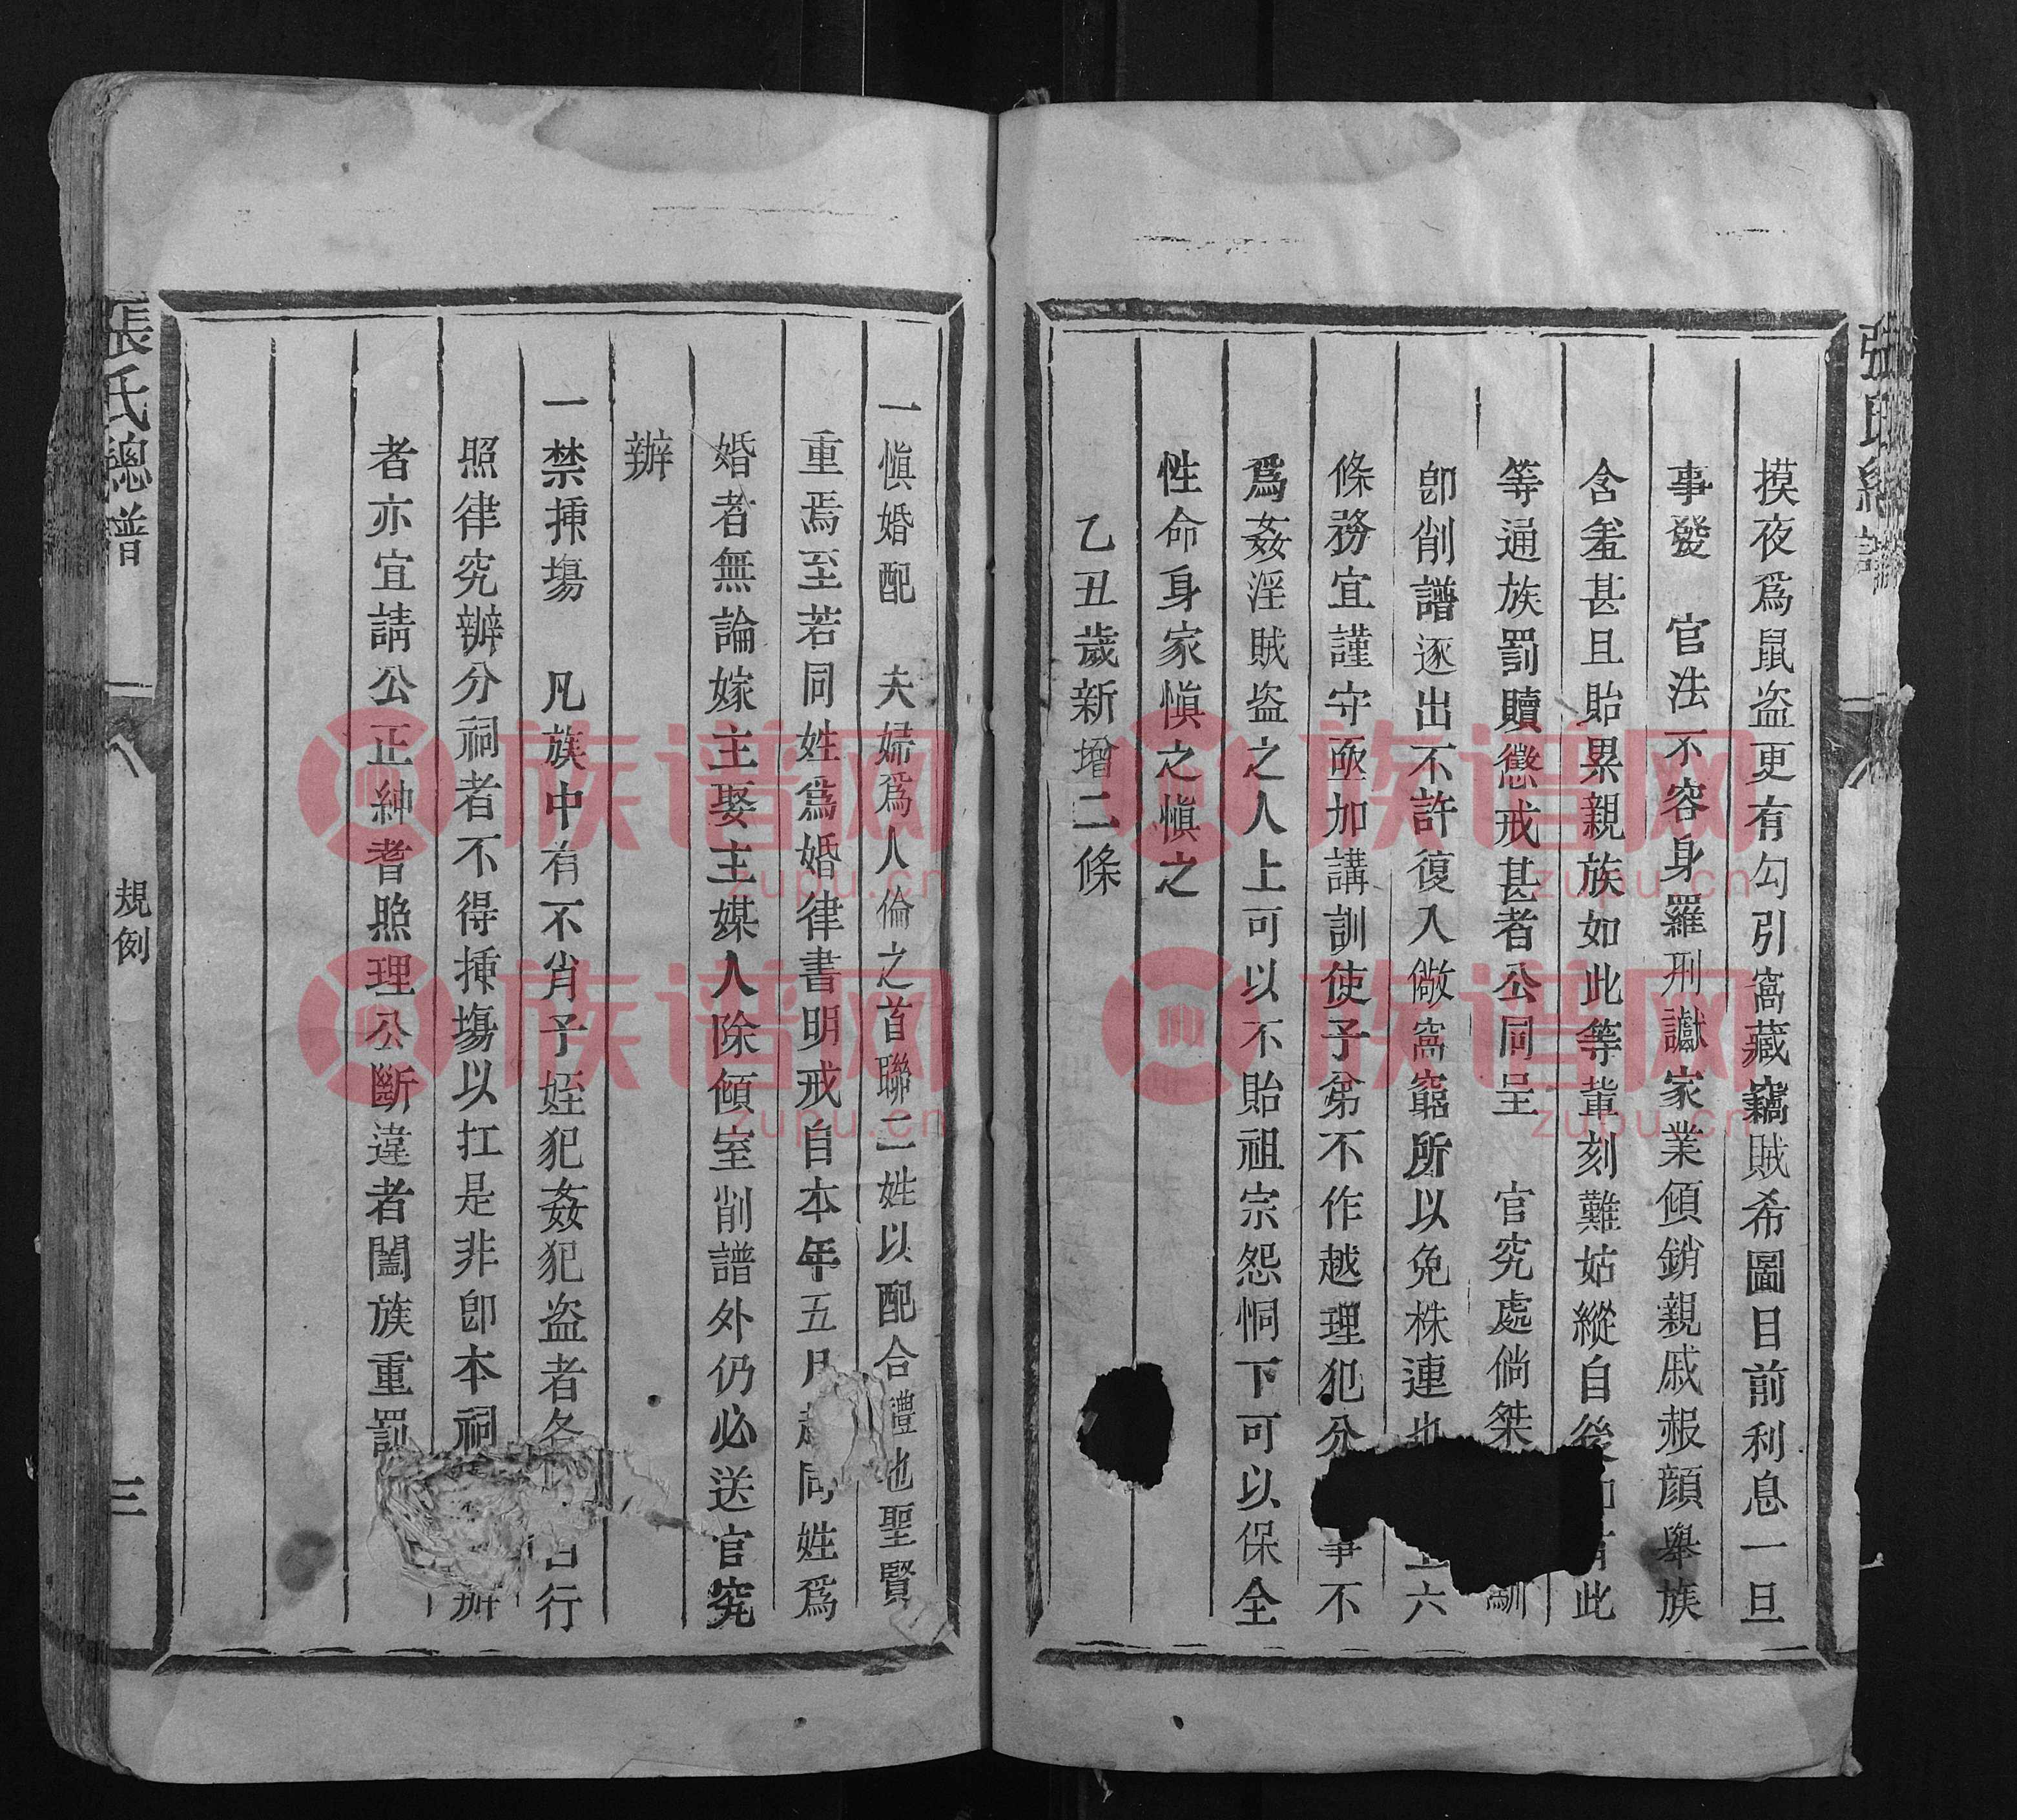 摸夜爲鼠盗更有勾引窩藏竊賊希圖目前利息一旦
事發　官法不容身羅刑讞家業傾銷親戚赧顔舉族
含羞甚且貽累親族如此等輩刻難姑縱自後如有此
等通族罰贖懲戒甚者公同呈　官究處倘桀馴
卽削譜逐出不許復入儆窩窮所以免株連也上六
條務宜謹守亟加講訓使子弟不作越理犯分事不
爲姦淫賊盗之人上可以不貽祖宗怨恫下可以保全
性命身家愼之愼之
乙丑歲新增二條
一愼婚配　夫婦爲人倫之首聯二姓以配合禮也聖賢
重焉至若同姓爲婚律書明戒自本年五月起同姓爲
婚者無論嫁主娶主媒人除傾室削譜外仍必送官究
辦
一禁揀塲　凡族中有不肖子姪犯姦犯盗者各行
照律究辦分祠者不得揀塲以扛是非卽本祠辦
者亦宜請公正紳耆照理公斷違者闔族重罰
張氏總譜
規例
三
張氏總譜
族谱网
zupu.cn
族谱网
zupu.cn
族谱网
zupu.cn
族谱网
zupu.cn